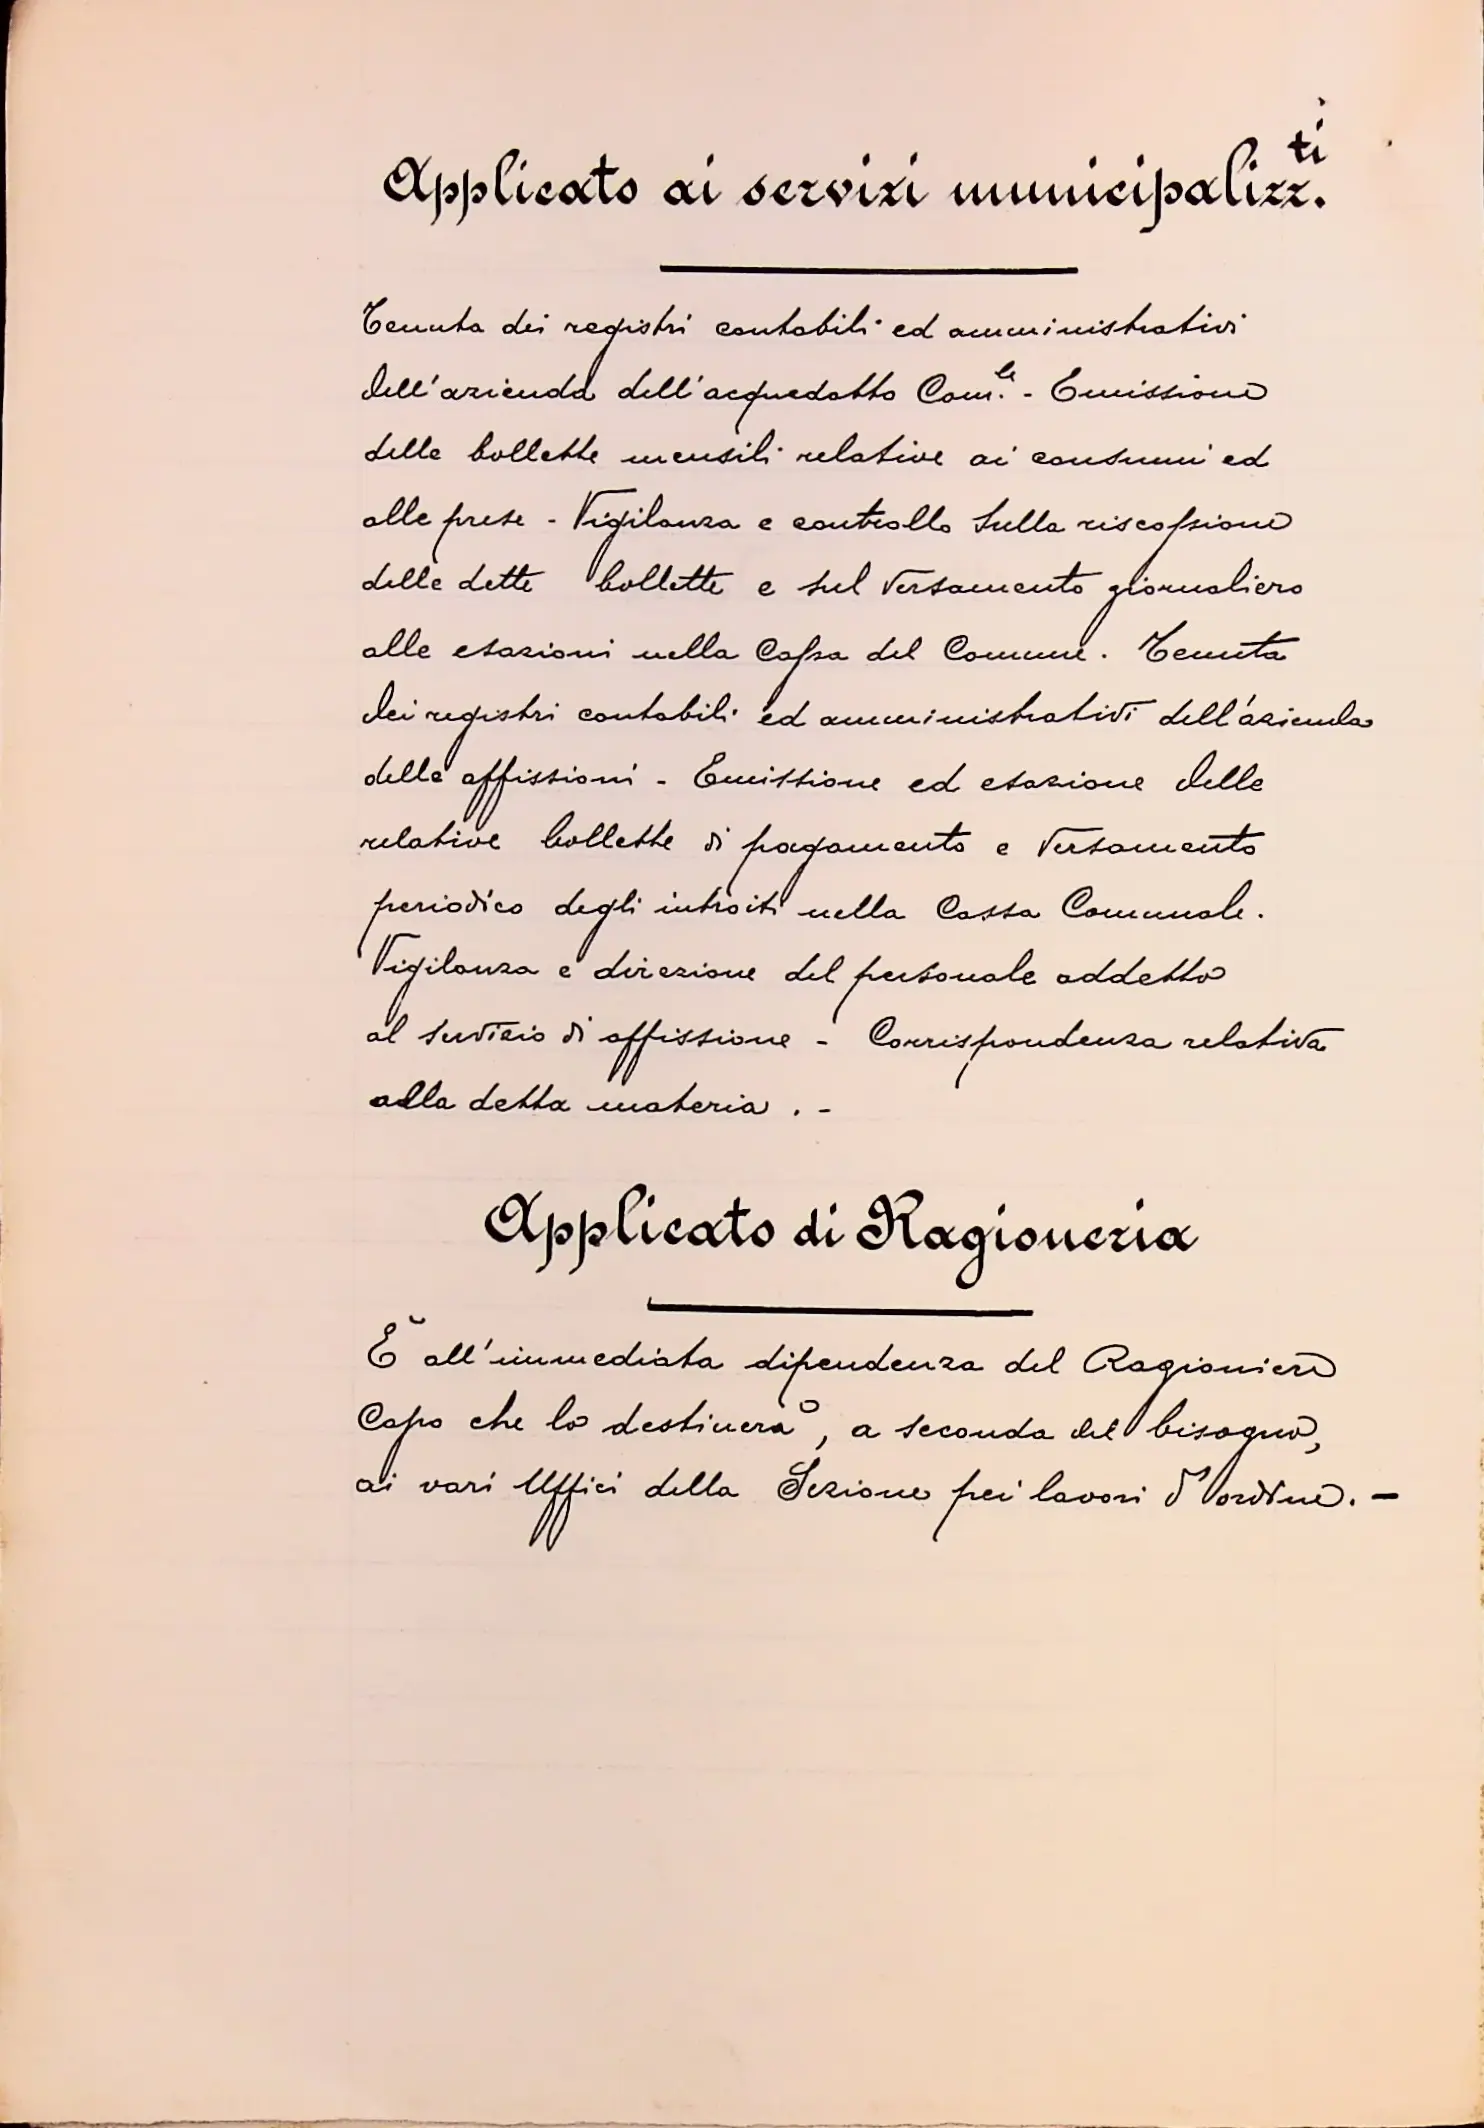 Applicato ai servizi municipalizz.ti
Tenuta dei registri contabili ed amministrativi
dell'azienda dell'acquedotto Com.le - Emissione
delle bollette mensili relative ai consumi ed
alle prese - Vigilanza e controllo sulla riscossione
delle dette bollette e sul versamento giornaliero
alle esazioni nella Cassa del Comune. Tenuta
dei registri contabili ed amministrativi dell'azienda
delle affissioni - Emissione ed esazione delle
relative bollette di pagamento e versamento
periodico degli introiti nella Cassa Comunale.
Vigilanza e direzione del personale addetto
al servizio di affissione - Corrispondenza relativa
alla detta materia . -
Applicato di Ragioneria
E' all'immediata dipendenza del Ragioniere
Capo che lo destinerà, a seconda del bisogno,
ai vari Uffici della Sezione pei lavori d'ordine. -